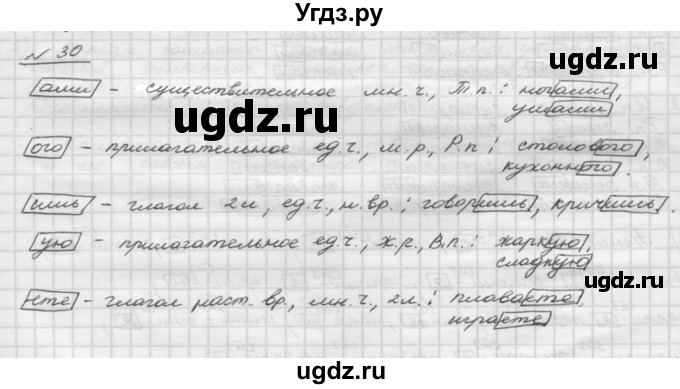 Угдз.ру
№ 30
ами – существительное мн. ч., Т.п. : ногами,
ушами
ugdz.ru
ого – прилагательное ед. ч., м. р., Р.п : столового,
кухонного.
ишь – глагол 2л, ед. ч., н. вр. : говоришь, кричишь.
ую – прилагательное ед. ч., ж. р., В.п. : жаркую,
сладкую
ugdz.ru
ugdz.ru
ете – глагол наст. вр, мн. ч., 2л. : плаваете,
играете
ugdz.ru